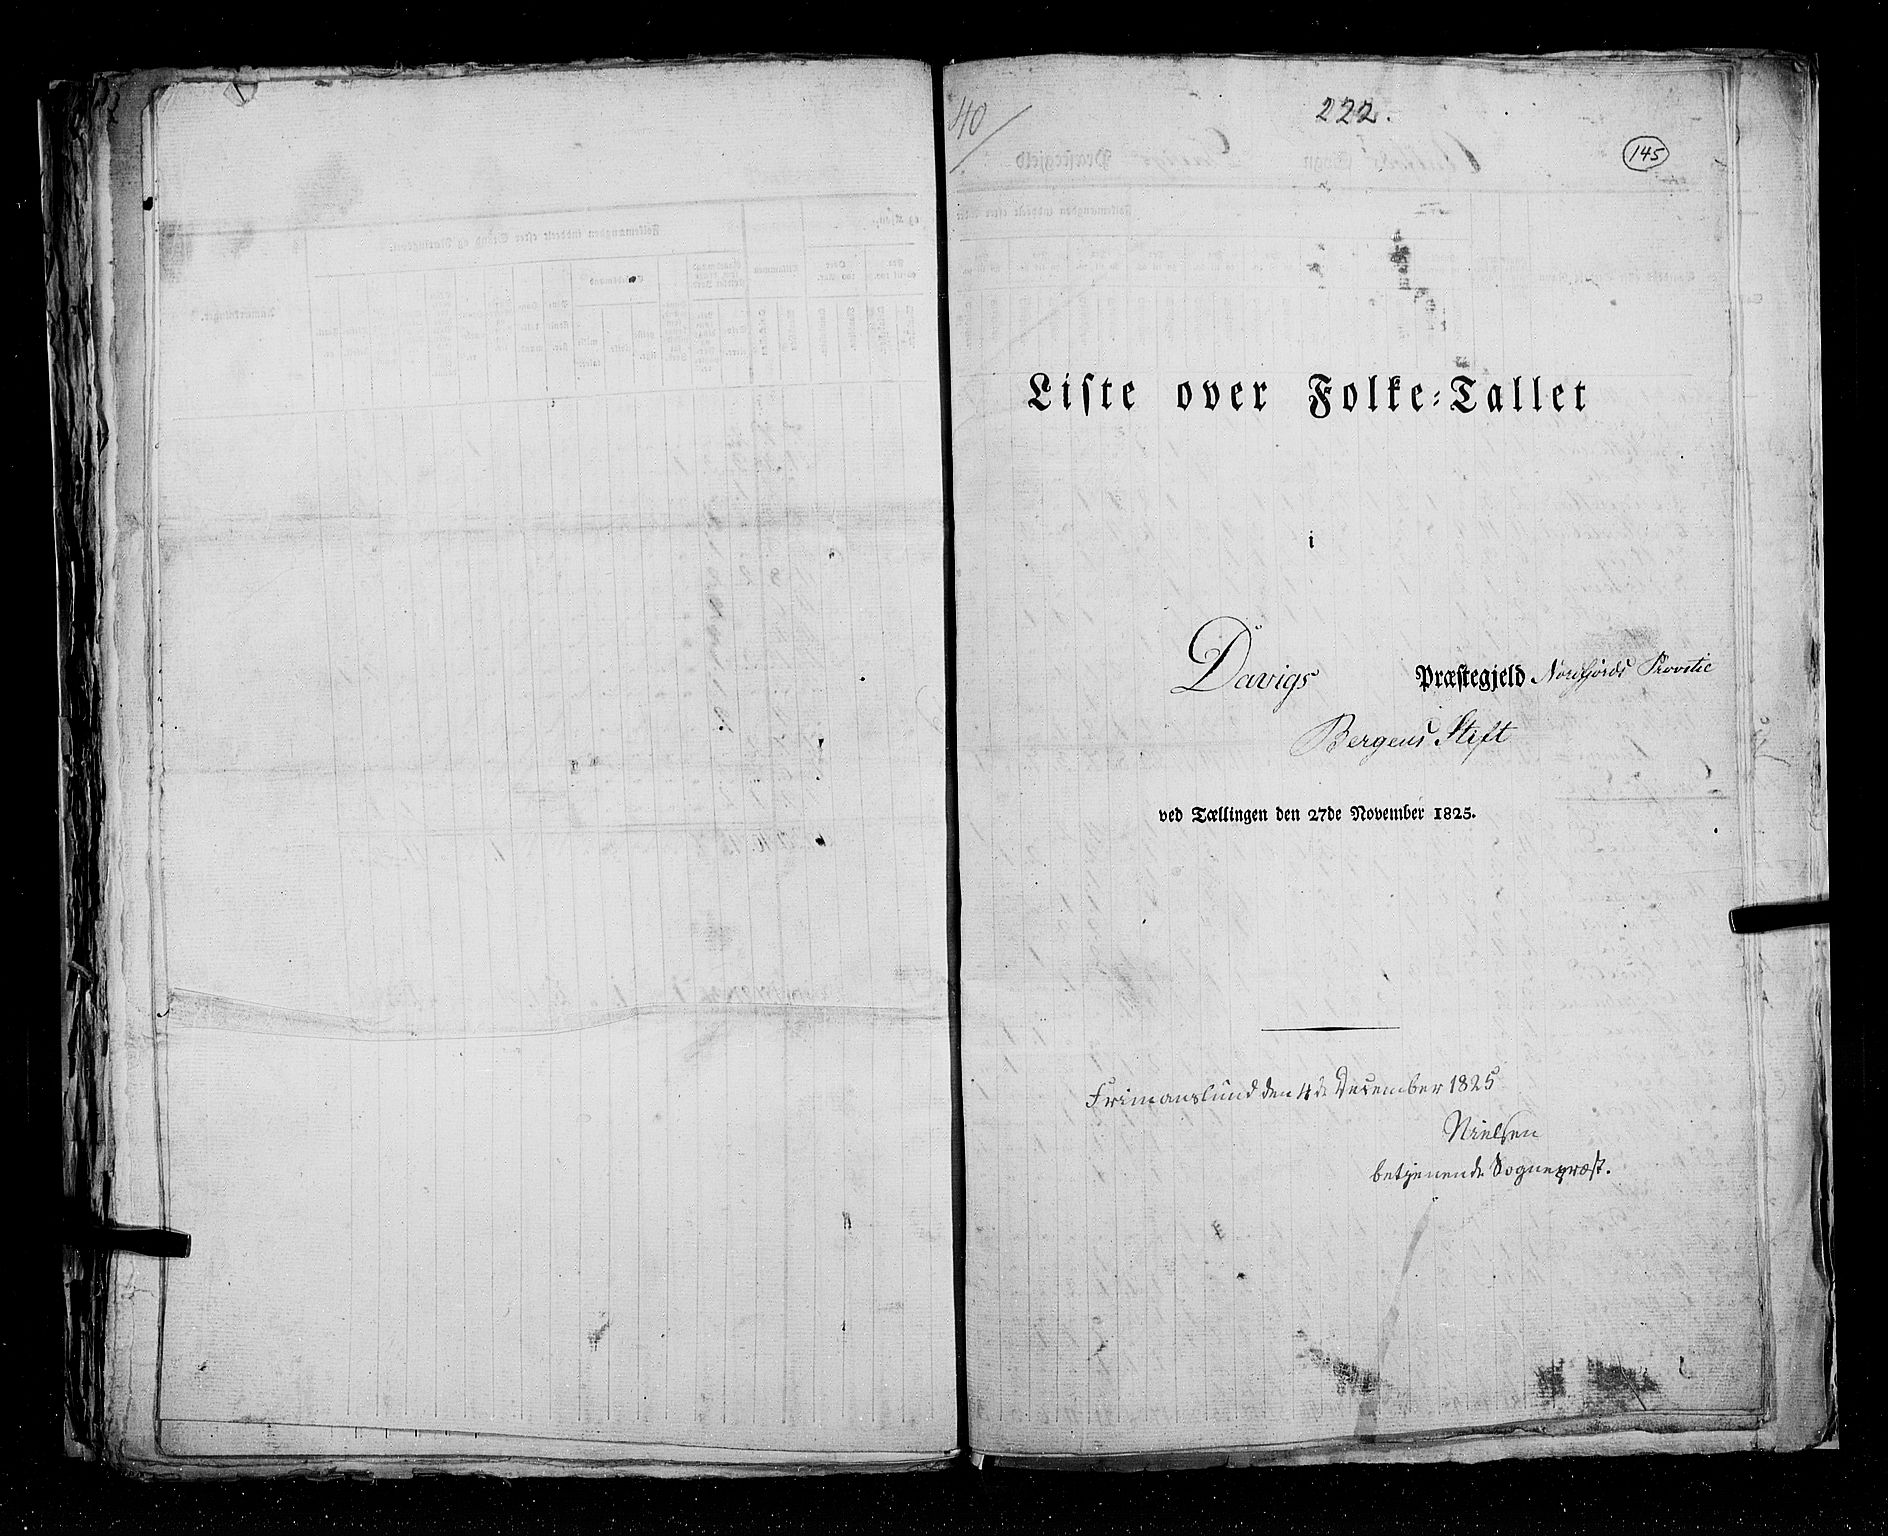 40
222.
145
Liste over Folke-Tallet
i
Davigs Præstegjeld Nordfjords Provstie
Bergens Stift
ved Tællingen den 27de November 1825.
Frimanslund den 4de December 1825
Nielsen
betjenende Sognepræst.